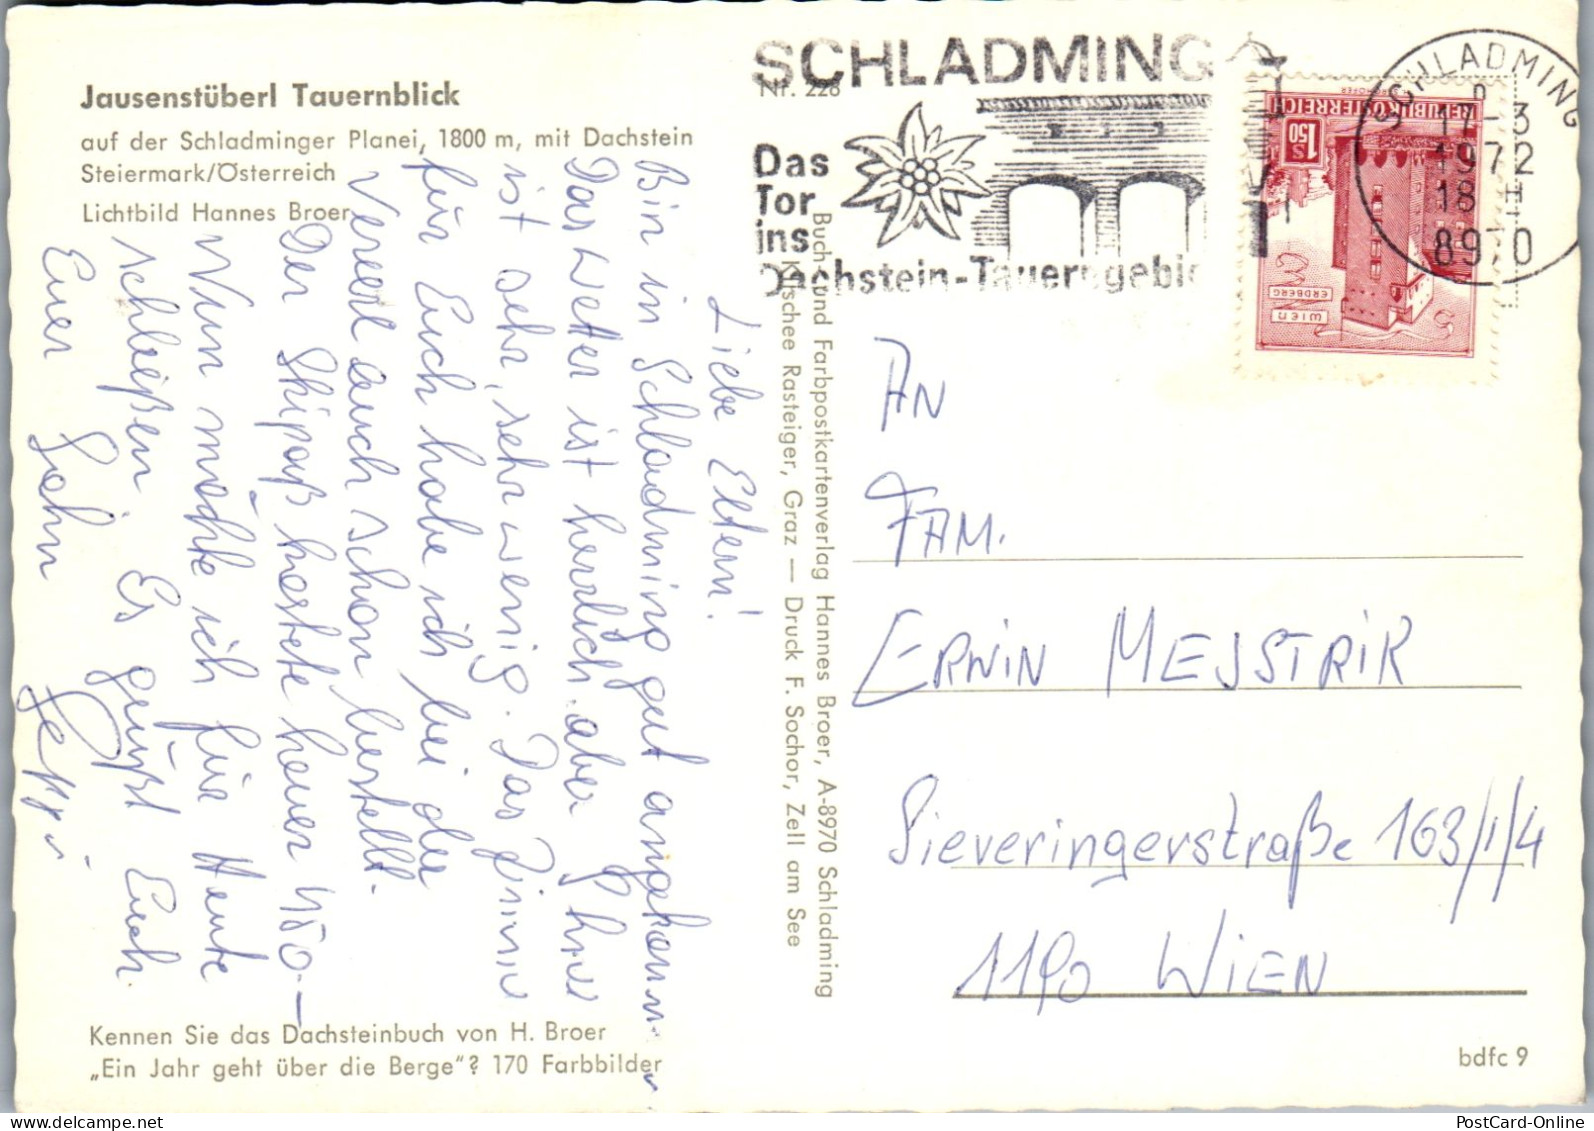 Jausenstüberl Tauernblick
auf der Schladminger Planei, 1800 m, mit Dachstein
Steiermark/Österreich
Lichtbild Hannes Broer
Liebe Eltern!
Bin in Schladming gut angekomm
Das Wetter ist herrlich, aber
ist sehr, sehr wenig. Das Zimmer
für Euch habe ich bei der
auch schon bestellt.
Der Skipaß kostete heuer 450.–
Nun möchte ich für Heute
schließen. Es grüßt Euch
Euer Sohn
Kennen Sie das Dachsteinbuch von H. Broer
„Ein Jahr geht über die Berge"? 170 Farbbilder
Buch- und Farbpostkartenverlag Hannes Broer, A-8970 Schladming
Klischee Rasteiger, Graz — Druck F. Sochor, Zell am See
Nr. 228
SCHLADMING
Das
Tor
ins
Dachstein-Tauerngebie
SCHLADMING
17-3
1972
18
8970
REPUBLIK ÖSTERREICH
S 1.50
WIEN
ERDBERG
AN
FAM.
ERWIN MEJSTRIK
Sieveringerstraße 163/1/4
1190 WIEN
bdfc 9
PostCard-Online